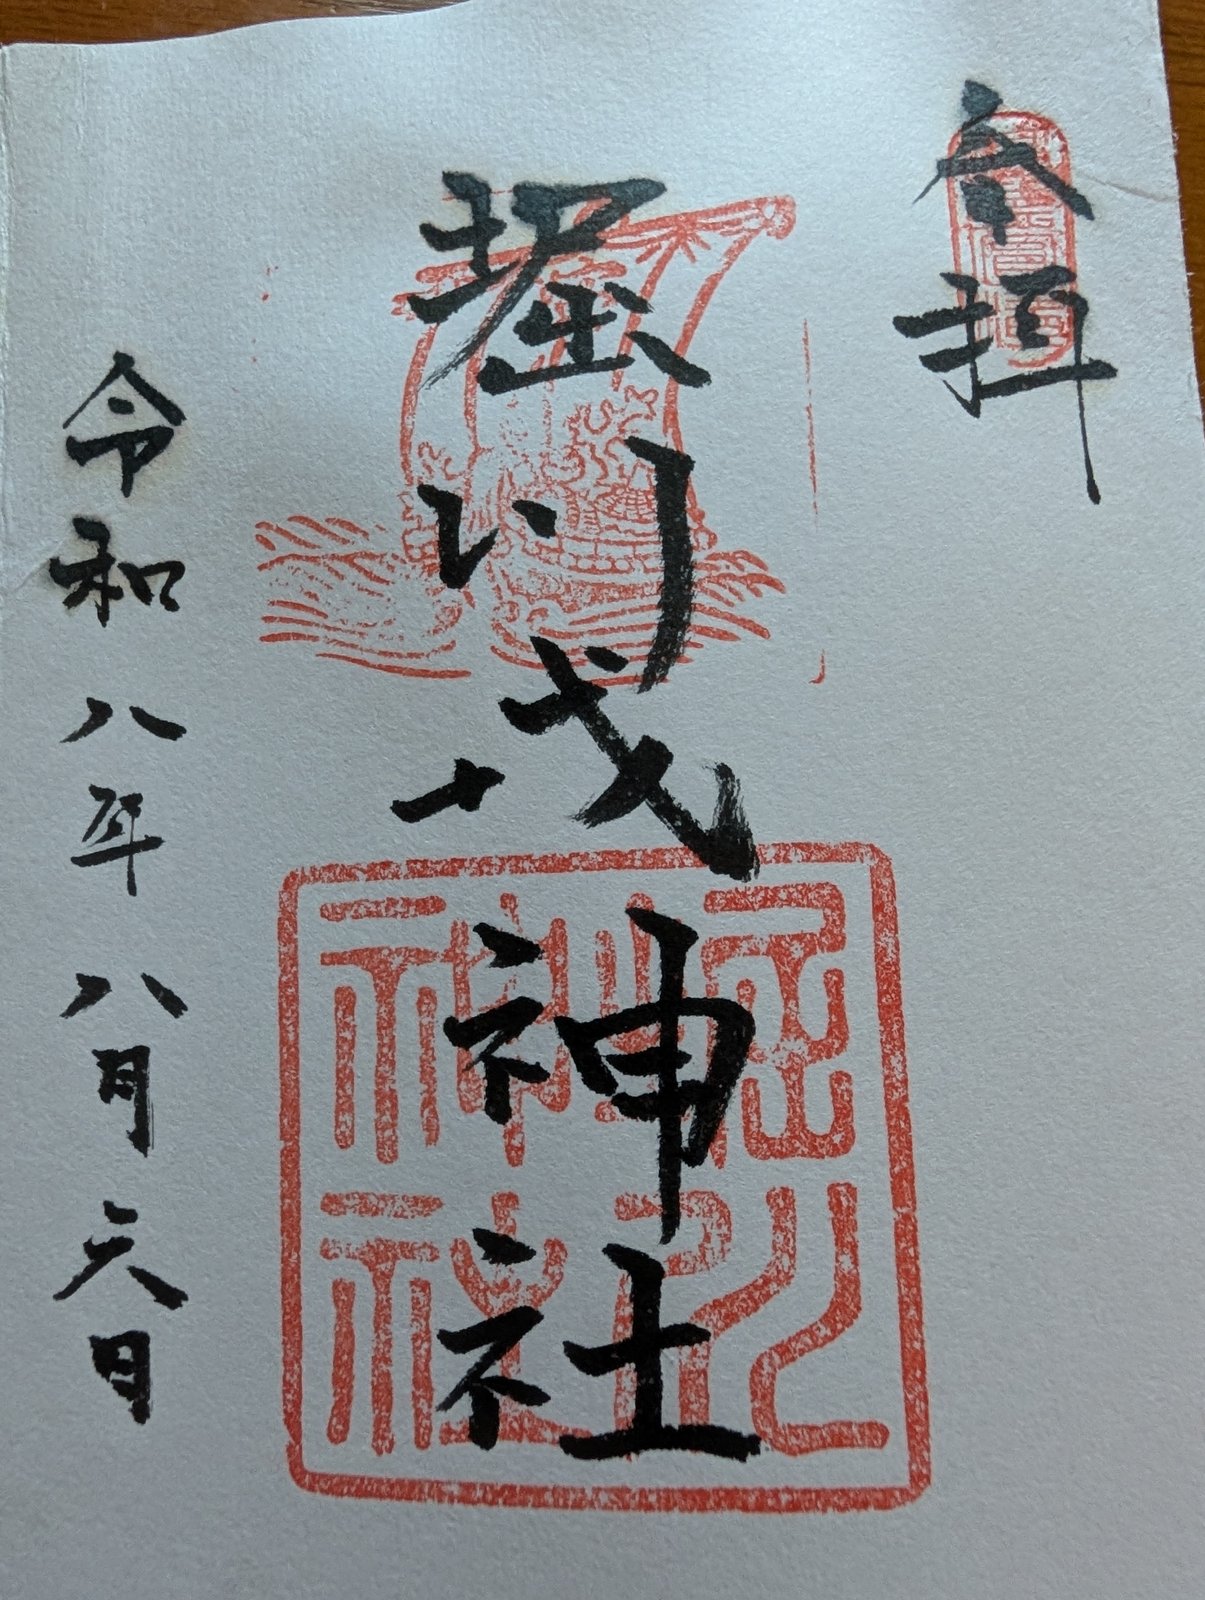 奉拝
堀川戎神社
令和八年八月六日